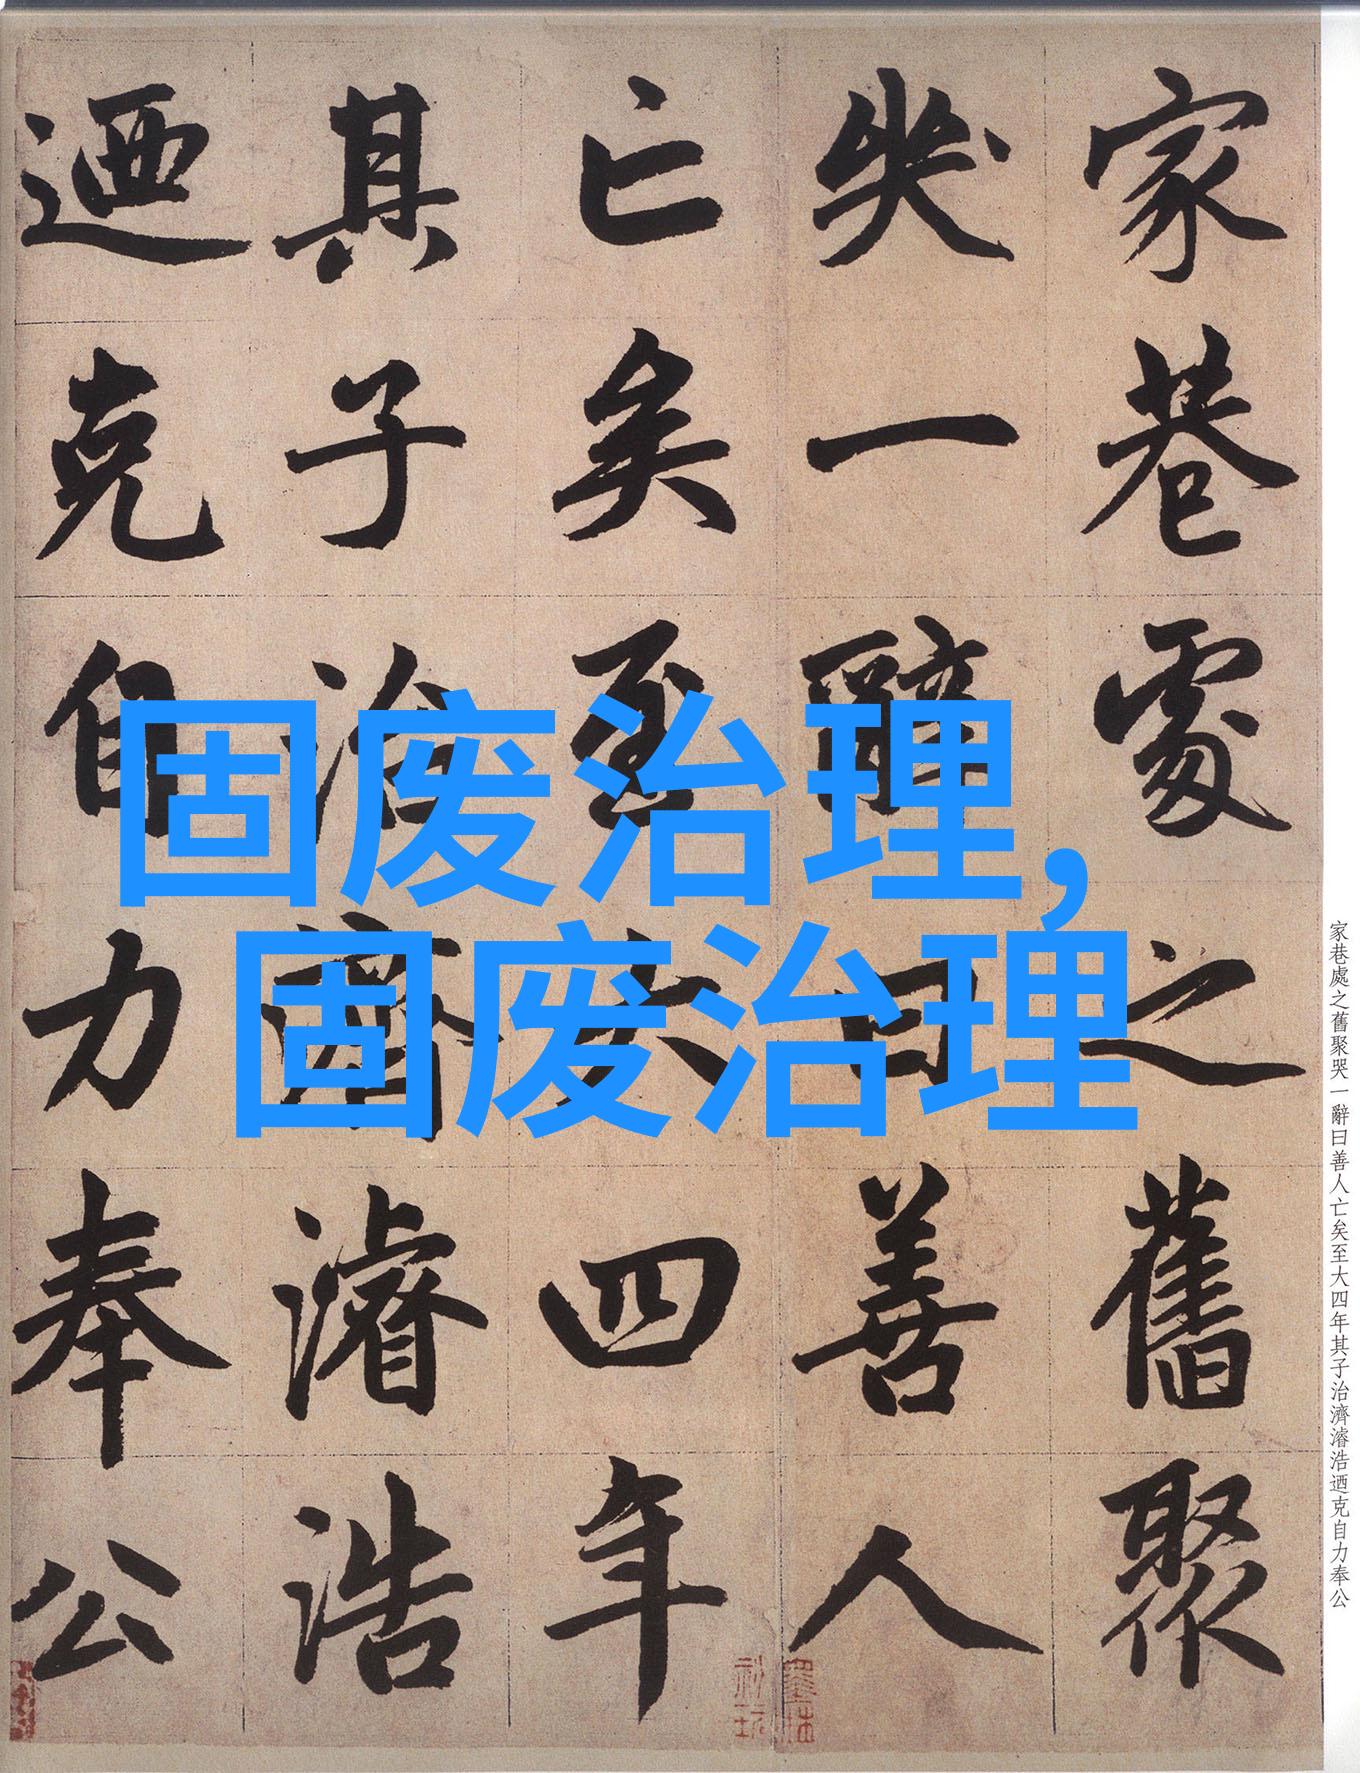 家巷處之舊聚
哭一辭曰善人
亡矣至大四年
其子治濟濬浩
迺克自力奉公
固废治理,
固废治理
家巷處之舊聚哭一辭曰善人亡矣至大四年其子治濟濬浩迺克自力奉公